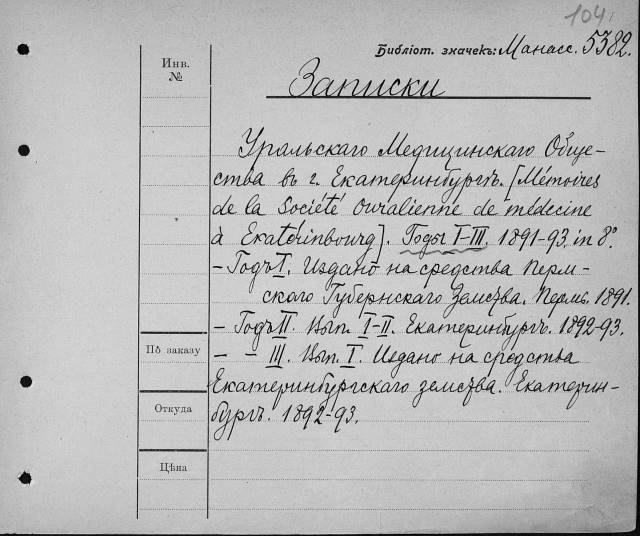 104.
Библіот. значекъ: Манасс. 5382.
Инв.
№
Записки
Уральскаго Медицинскаго Обще-
ства въ г. Екатеринбургѣ. [Mémoires
de la Société Ouralienne de médecine
à Ekatérinbourg]. Годы I-III. 1891-93. in 8°.
- Годъ I. Издано на средства Перм-
скаго Губернскаго Земства. Пермь. 1891.
- Годъ II. Вып. I-II. Екатеринбургъ. 1892-93.
- - III. Вып. I. Издано на средства
Екатеринбургскаго земства. Екатерин-
бургъ. 1892-93.
По заказу
Откуда
Цѣна